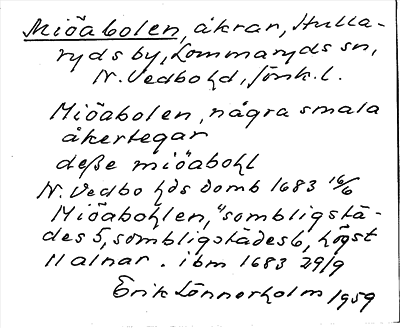 Miöabolen, åkrar, Hulla-
ryds by, Lommaryds sn,
N. Vedbo hd, Jönk. l.
Miöabolen, några smala
åkertegar
deße miöabohl
N. Vedbo hds domb 1683 16/6
Miöabohlen, "sombligstä-
des 5, sombligstädes 6, högst
11 alnar. ibm 1683 29/9
Erik Lönnerholm 1959